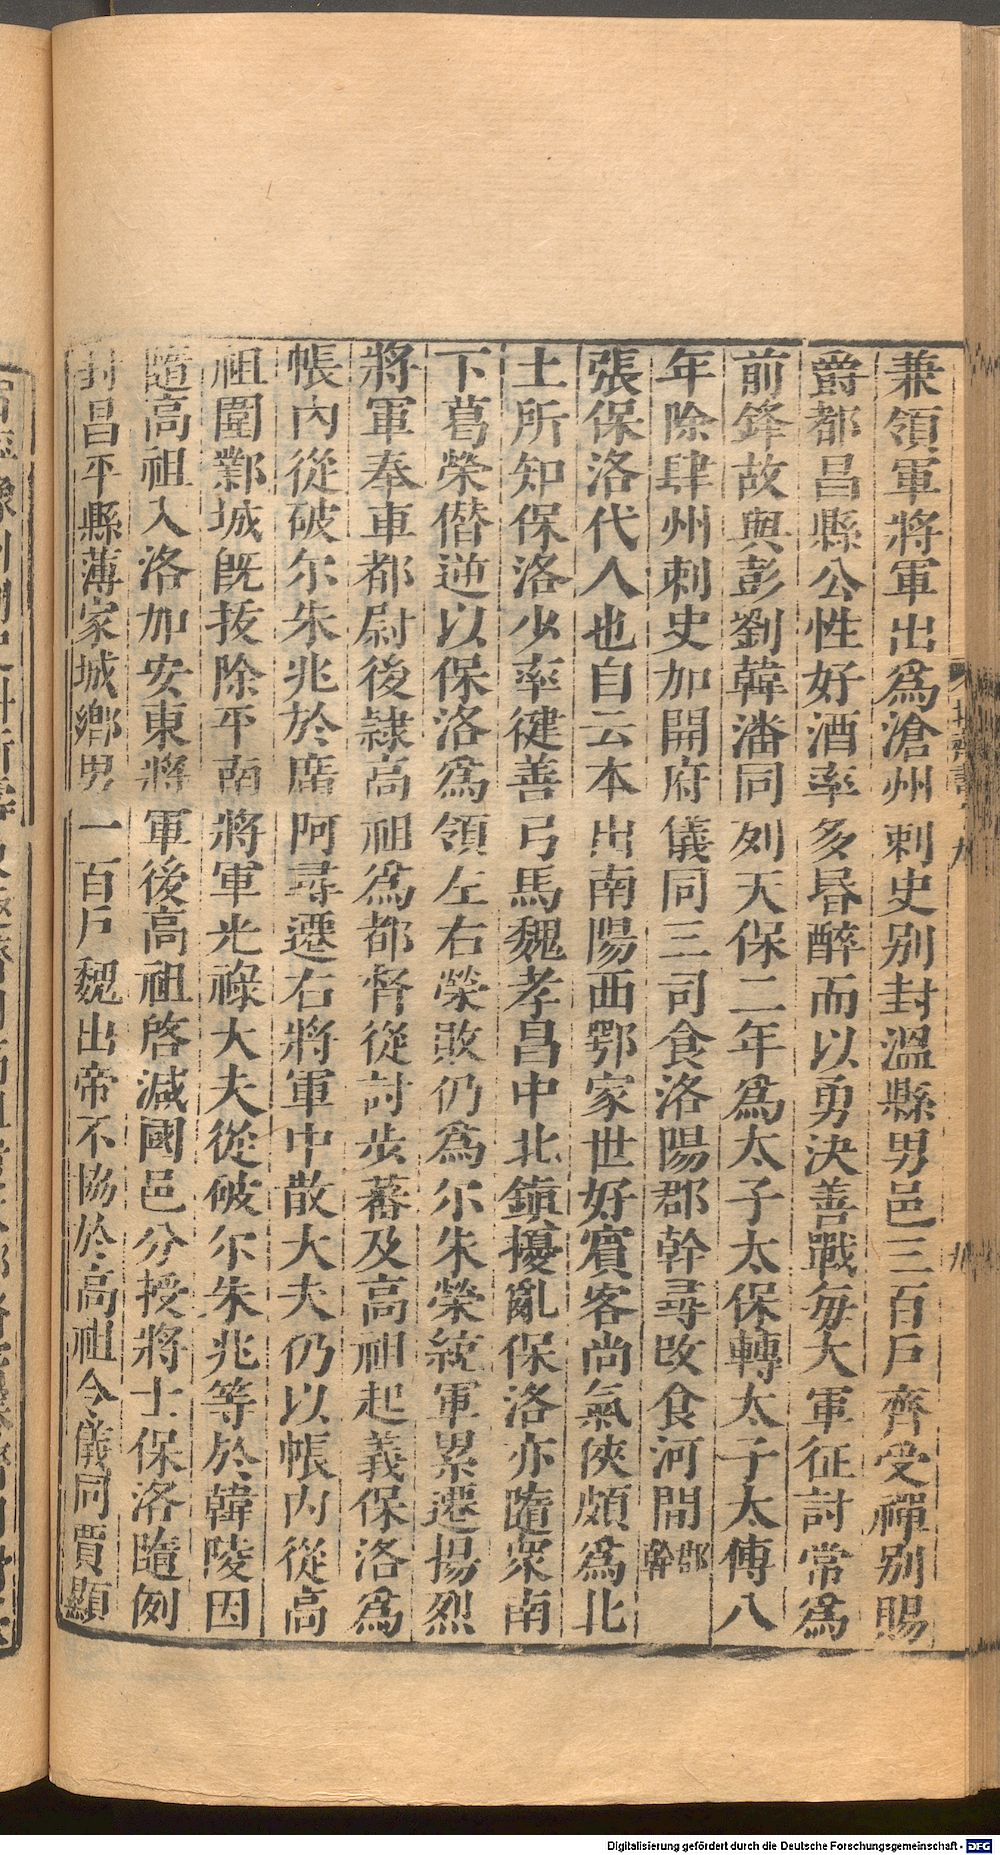 兼領軍將軍出爲滄州刺史別封溫縣男邑三百戶齊受禪別賜
爵都昌縣公性好酒率多昬醉而以勇決善戰每大軍征討常爲
前鋒故與彭劉韓潘同列天保二年爲太子太保轉太子太傅八
年除肆州刺史加開府儀同三司食洛陽郡幹尋改食河間郡幹
張保洛代人也自云本出南陽西鄂家世好賓客尚氣俠頗爲北
土所知保洛少率健善弓馬魏孝昌中北鎮擾亂保洛亦隨衆南
下葛榮僭逆以保洛爲領左右榮敗仍爲尒朱榮統軍累遷揚烈
將軍奉車都尉後隷高祖爲都督從討步蕃及高祖起義保洛爲
帳內從破尒朱兆於廣阿尋遷右將軍中散大夫仍以帳內從高
祖圍鄴城旣拔除平南將軍光祿大夫從破尒朱兆等於韓陵因
隨高祖入洛加安東將軍後高祖啓減國邑分授將士保洛隨例
封昌平縣薄家城鄉男一百戶魏出帝不協於高祖令儀同賈顯
Digitalisierung gefördert durch die Deutsche Forschungsgemeinschaft - DFG